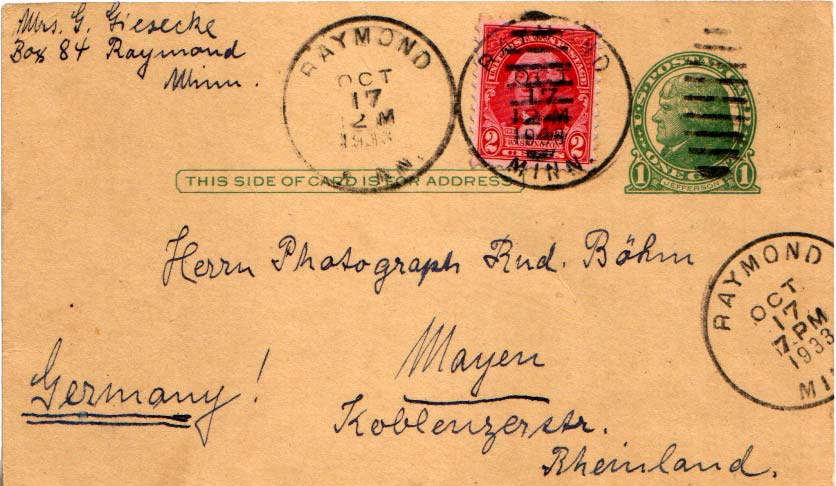 Mrs. G. Giesecke
Box 84 Raymond
Minn.
RAYMOND
OCT
17
2 M
MINN.
UNITED STATES POSTAGE
2 2
WASHINGTON
OCT
17
MINN.
U.S. POSTAL CARD
1 ONE CENT 1
JEFFERSON
THIS SIDE OF CARD IS FOR ADDRESS
Herrn Photograph Rud. Böhm
RAYMOND
OCT
17
7 PM
1933
Mayen
Germany!
Koblenzerstr.
Rheinland.